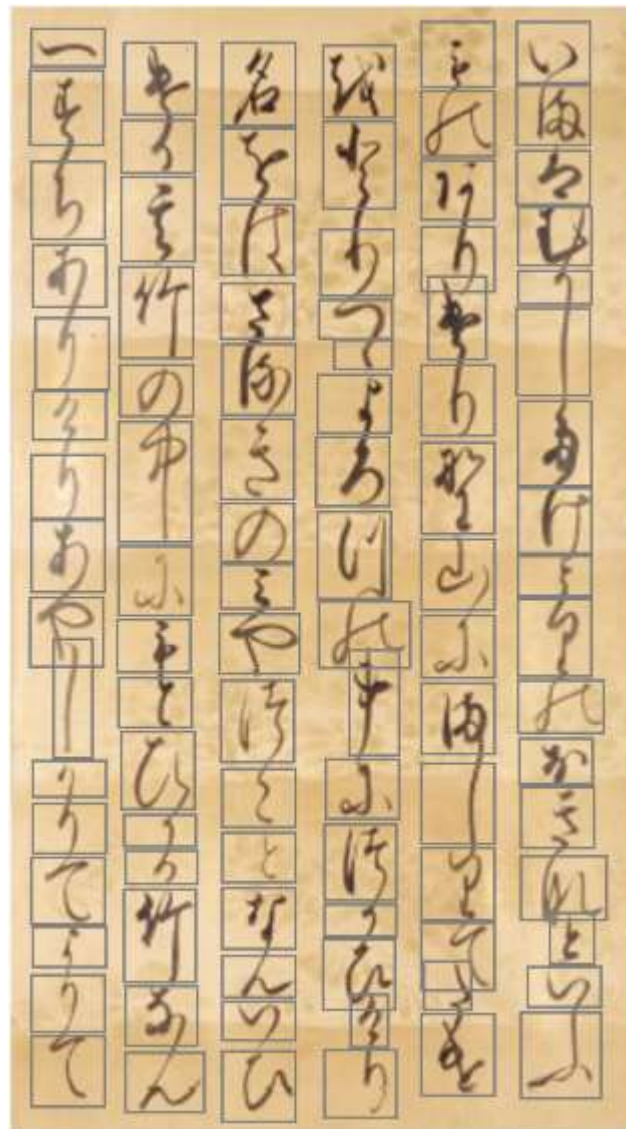 いまはむかしたけとりのおきなといふ
ものありけり野山にましりてたけ
をとりつゝよろつの事につかひけり
名をはさぬきのみやつことなんいひ
ける其竹の中にもとひかる竹なん
一すちありけりあやしかりてよりて